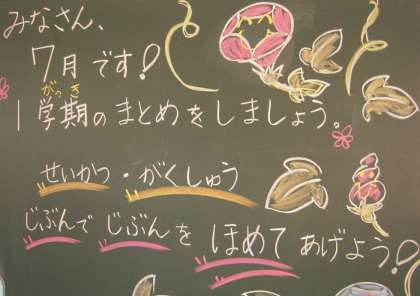 みなさん、
7月です!
がっき
1学期のまとめをしましょう。
せいかつ・がくしゅう
じぶんでじぶんをほめてあげよう!